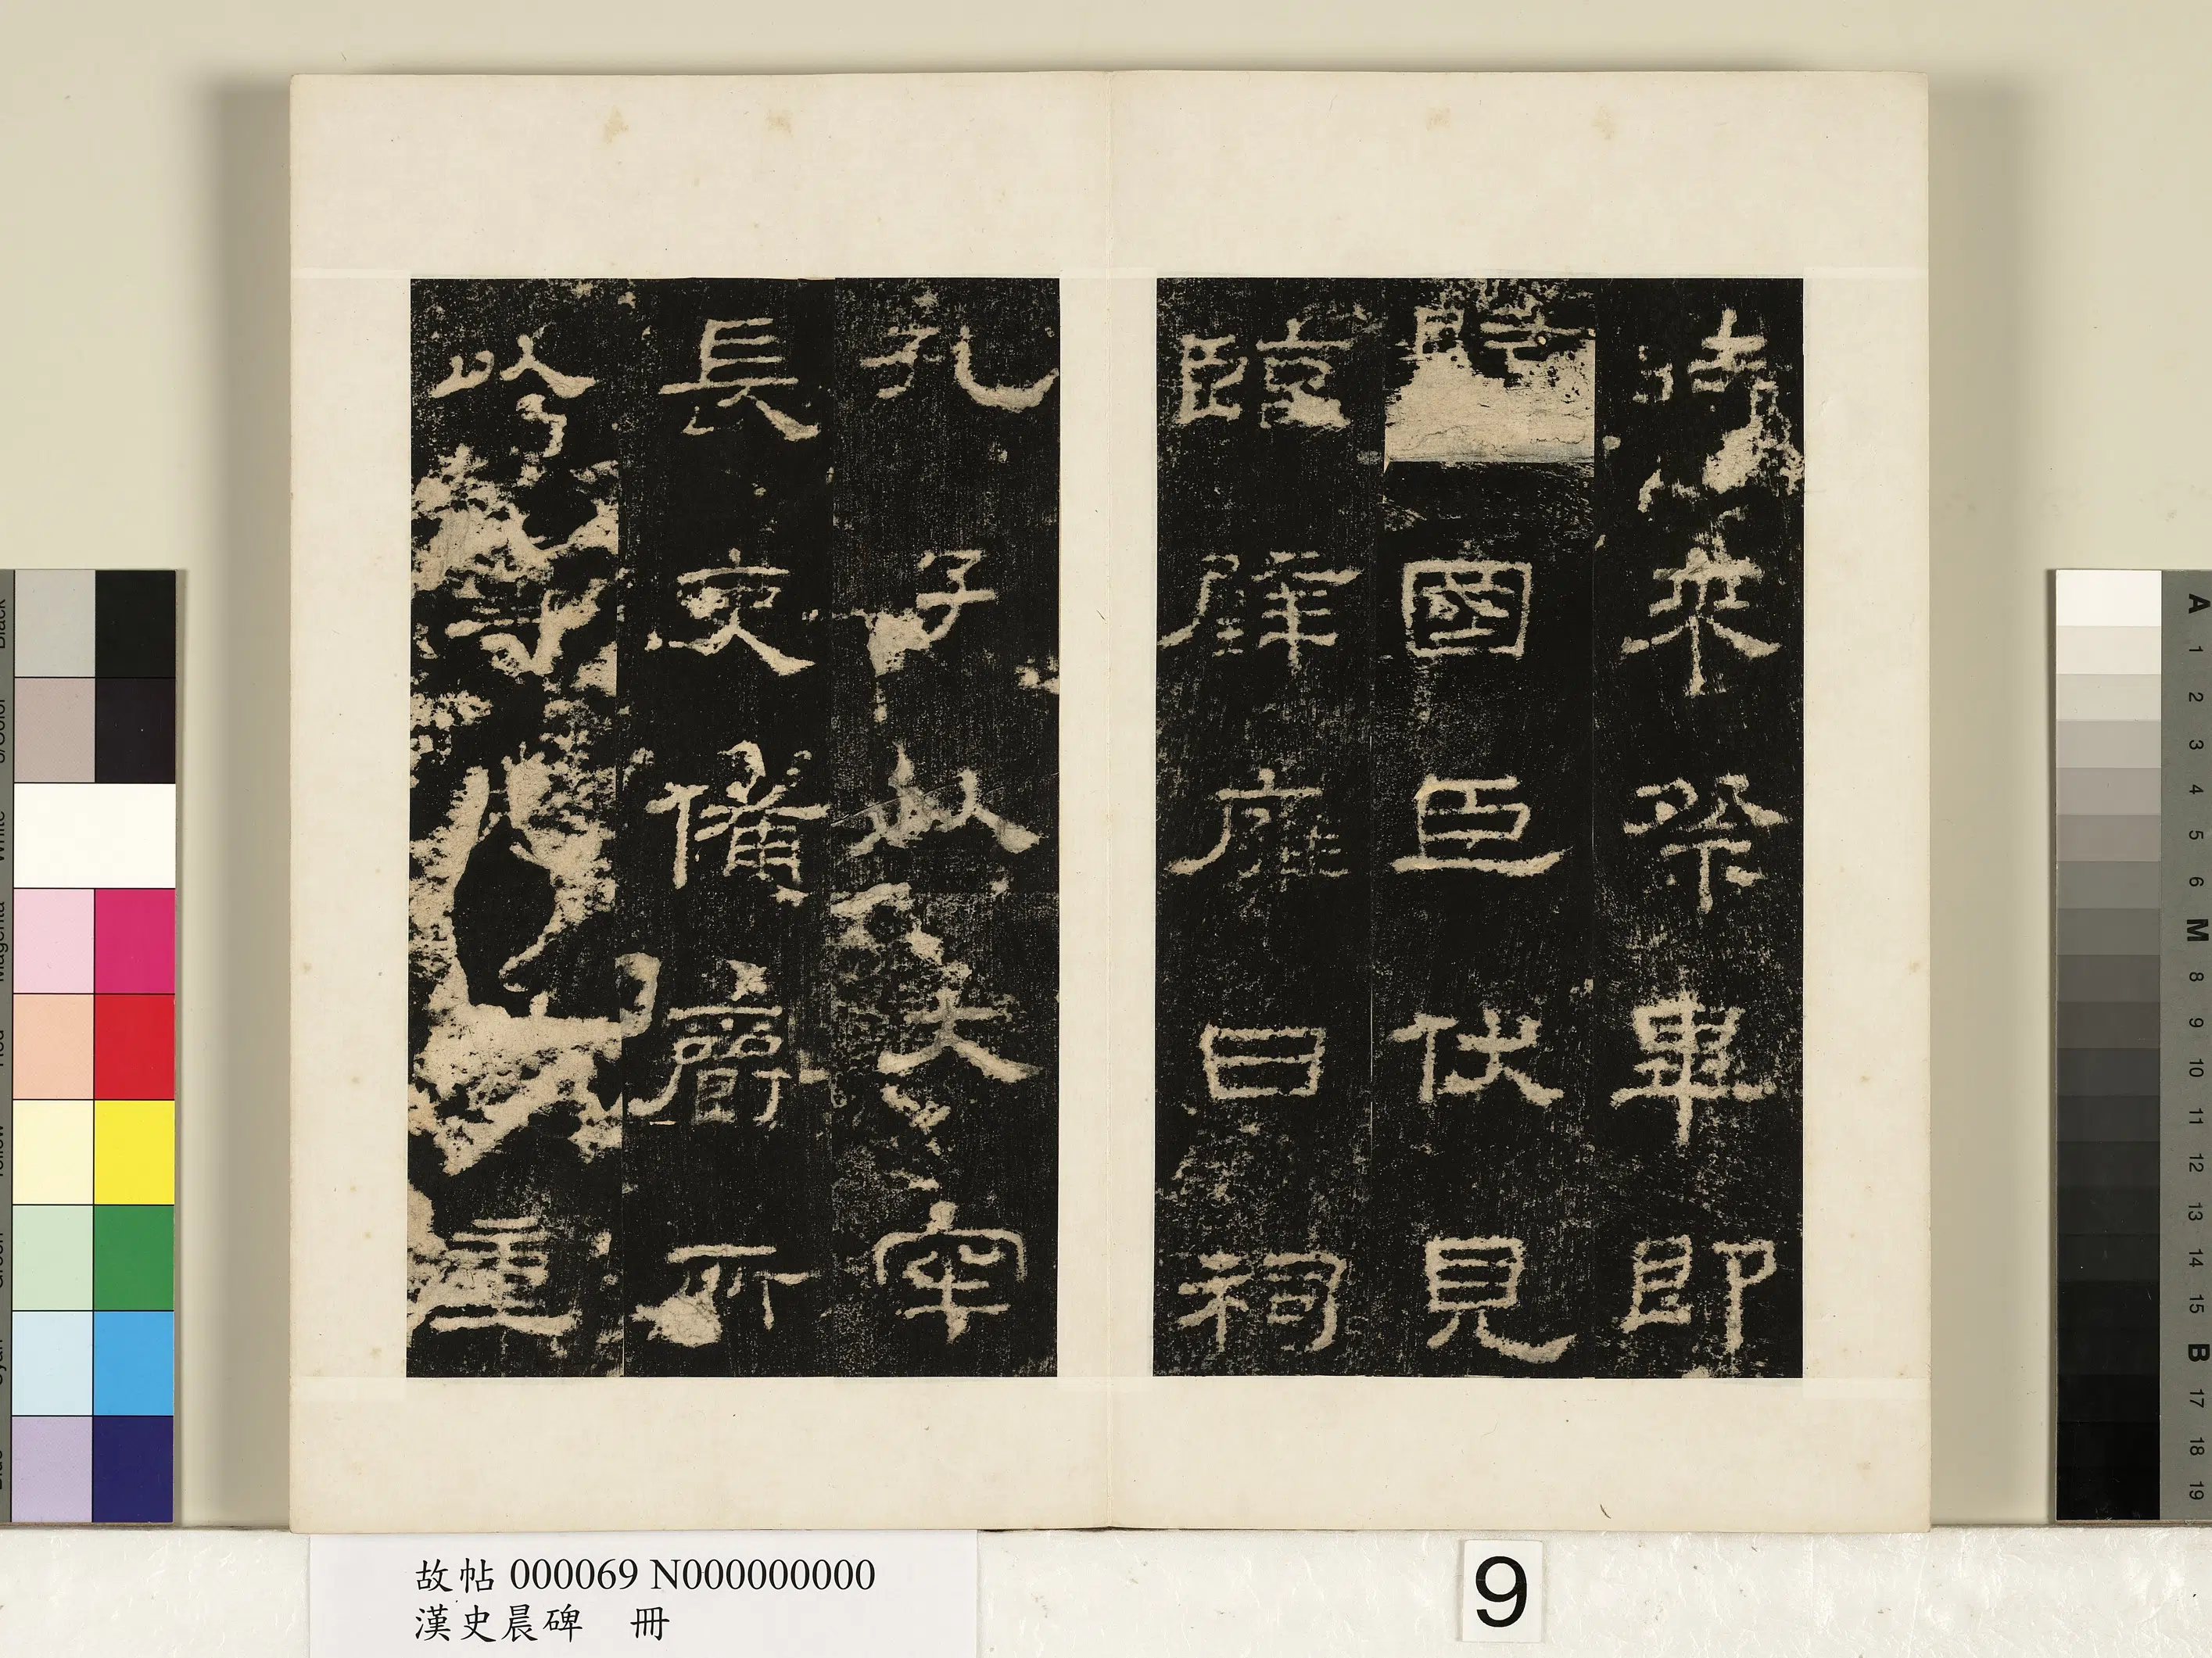 時来祭畢即
歸國臣伏見
臨辟雍日祠
孔子以大牢
長吏備爵所
以尊重
故帖 000069 N000000000
漢史晨碑 冊
9
A 1 2 3 4 5 6 M 8 9 10 11 12 13 14 15 B 17 18 19